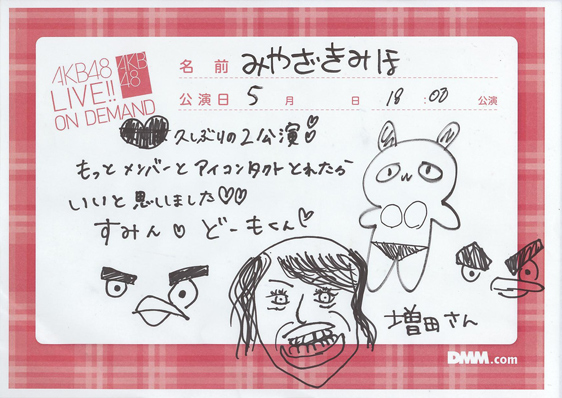 AKB48
LIVE!!
ON DEMAND
AKB
48
名前 みやざきみほ
公演日 5月 日 18:00 公演
久しぶりの2公演
もっとメンバーとアイコンタクトとれたら
いいと思いました
すみん どーもくん
増田さん
DMM.com